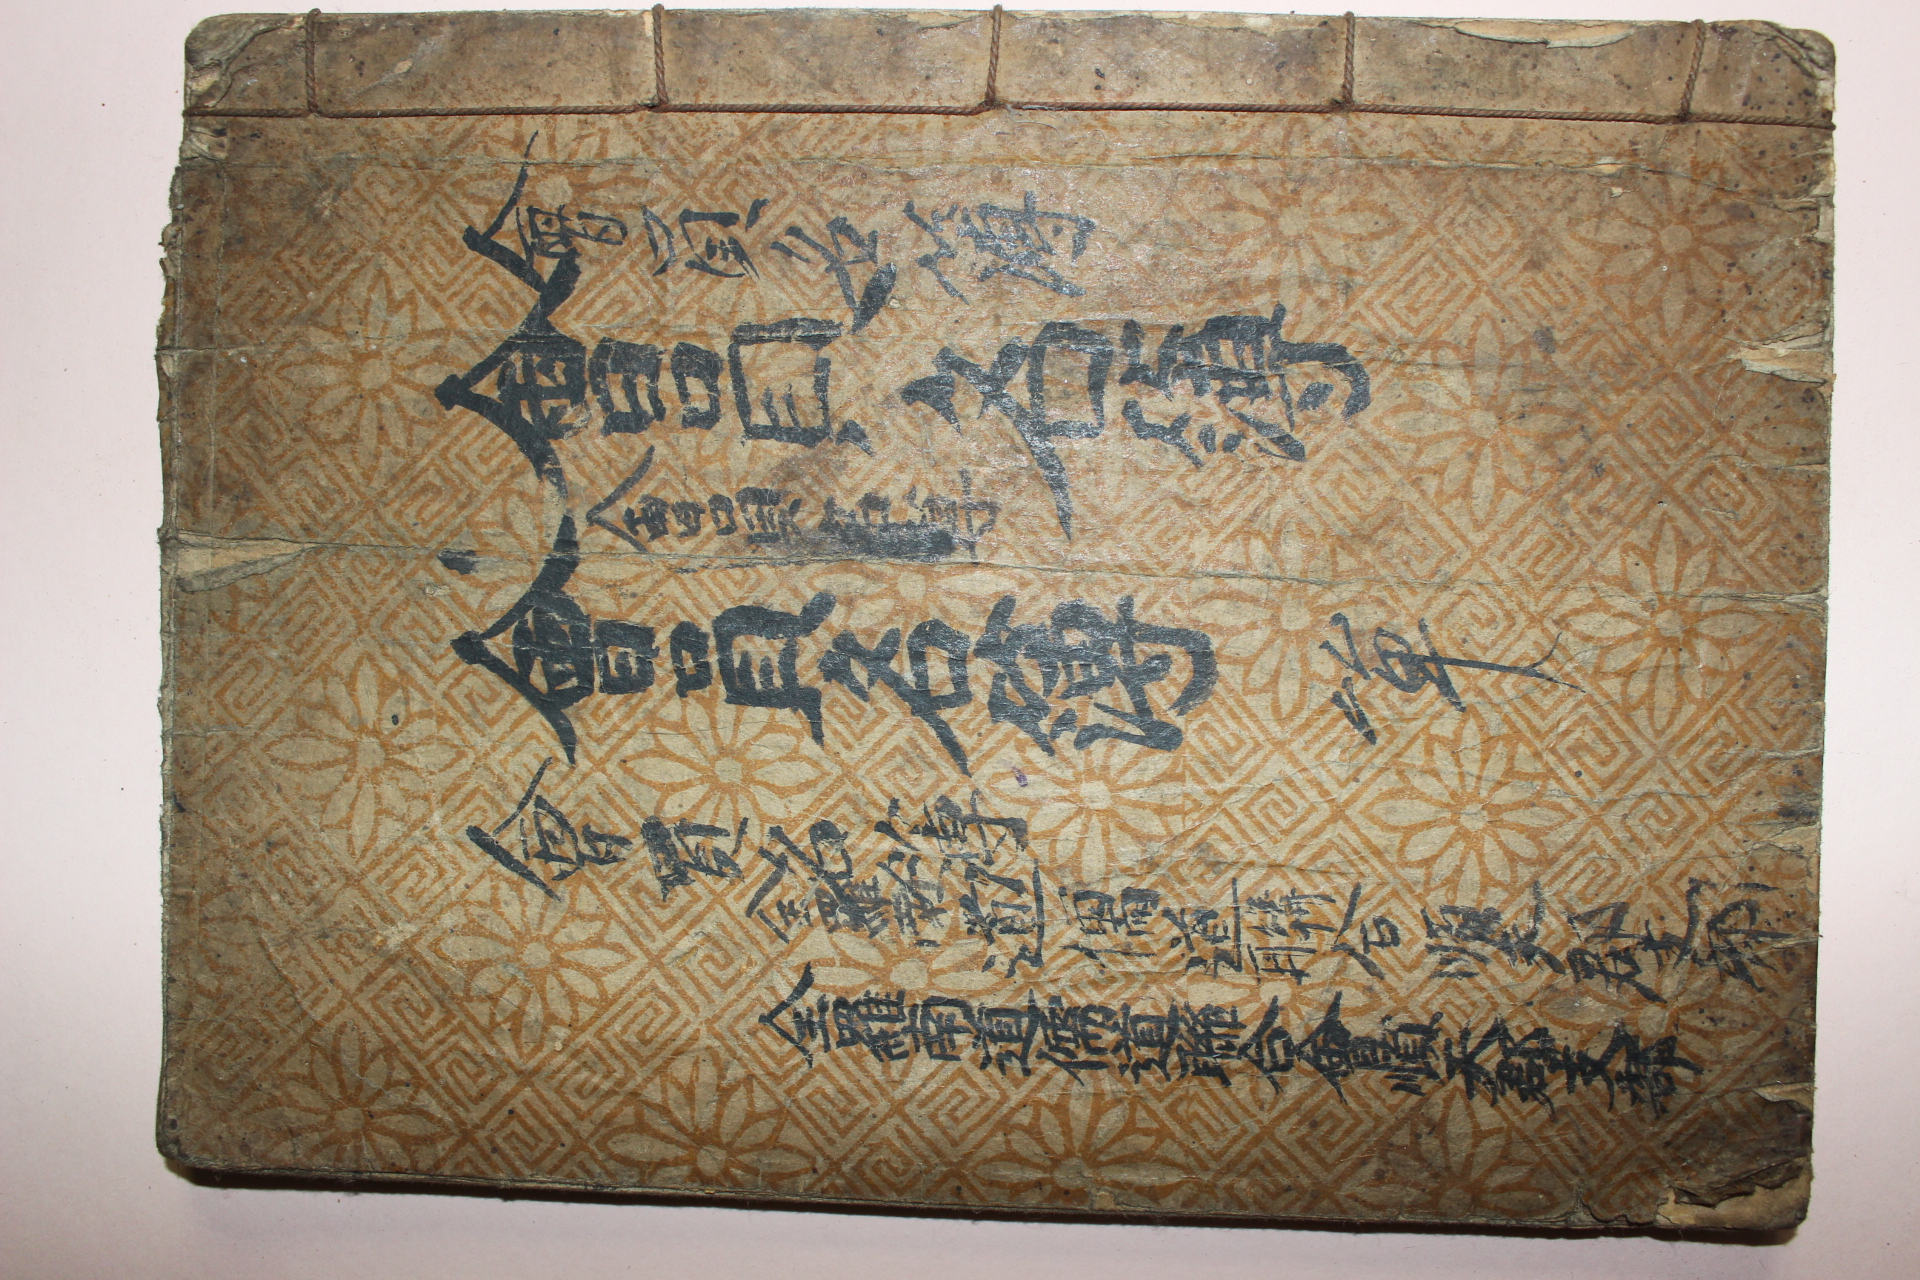 會員名簿
會員名簿
會員名簿
會員名簿
單
會員名簿
全羅南道儒道聯合順天郡支部
全羅南道儒道聯合會順天郡支部